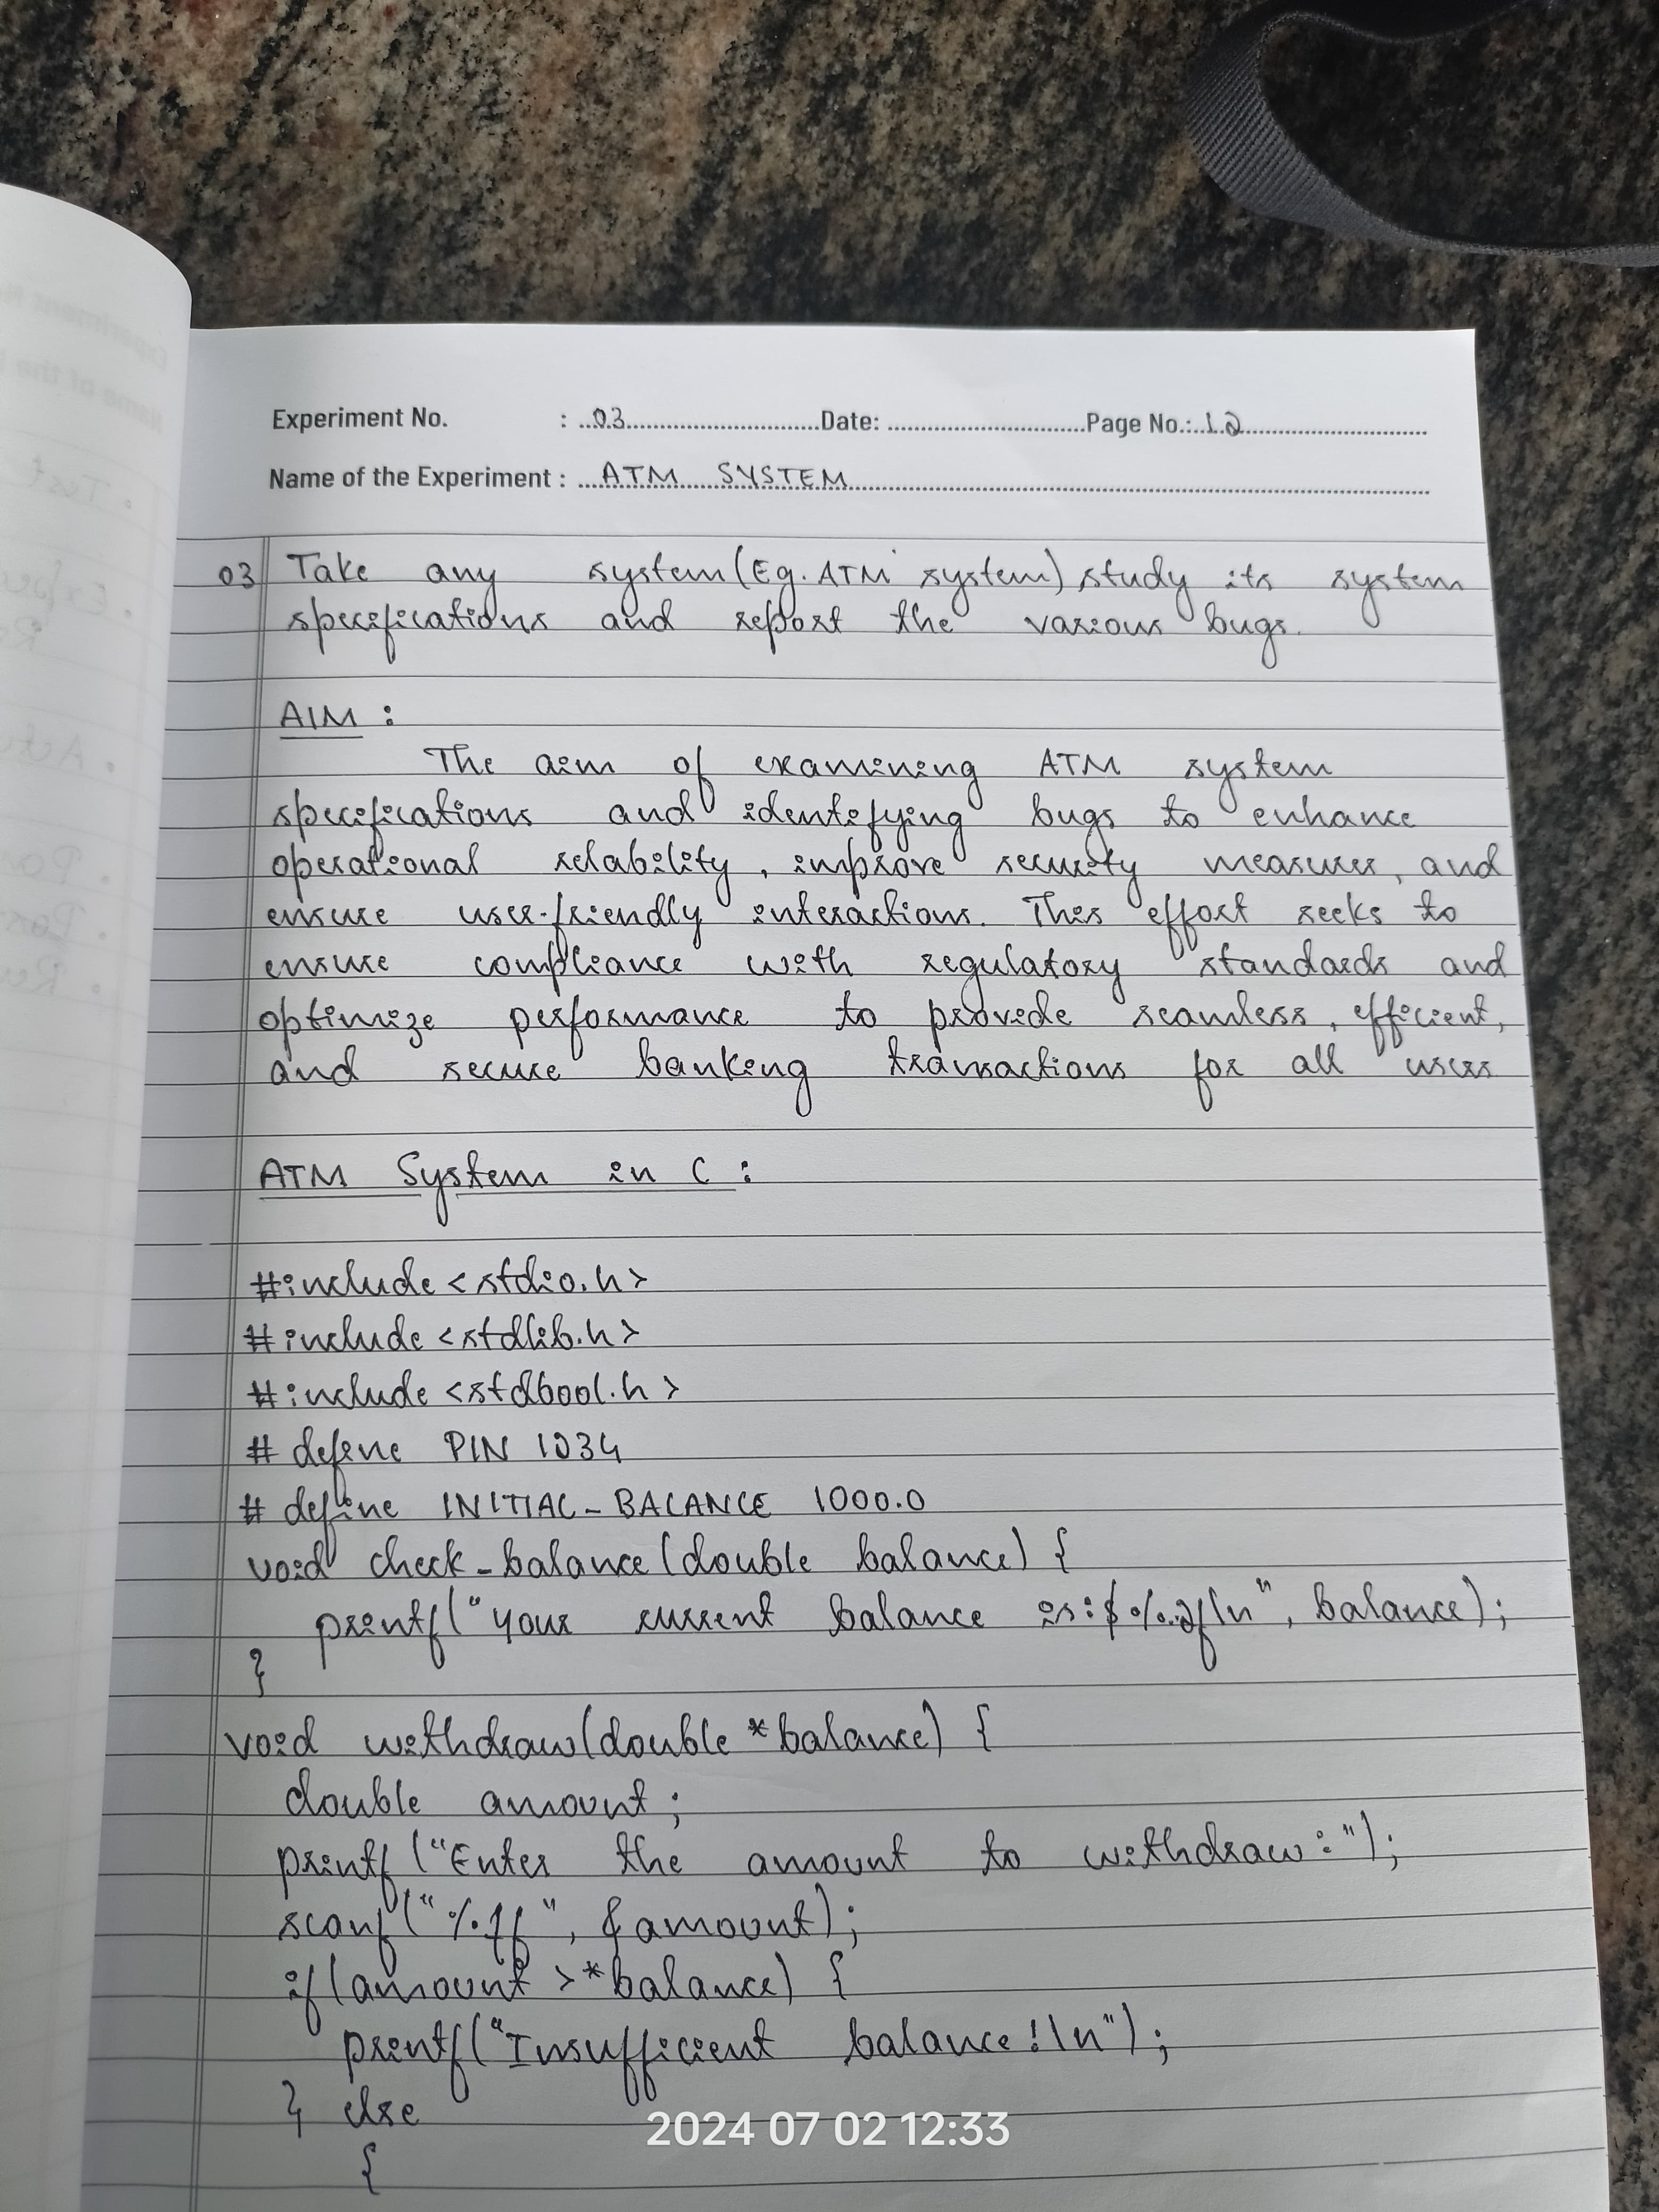 Experiment No. : 03 Date: Page No.: 12
Name of the Experiment : ATM SYSTEM
03 Take any system (Eg. ATM system) study its system
specifications and report the various bugs.
AIM :
The aim of examining ATM system
specifications and identifying bugs to enhance
operational reliability, improve security measures, and
ensure user-friendly interactions. This effort seeks to
ensure compliance with regulatory standards and
optimize performance to provide seamless, efficient,
and secure banking transactions for all users
ATM System in C :
#include <stdio.h>
#include <stdlib.h>
#include <stdbool.h>
# define PIN 1234
# define INITIAL_BALANCE 1000.0
void check_balance(double balance) {
printf("your current balance is:$%.2f\n", balance);
}
void withdraw(double *balance) {
double amount;
printf("Enter the amount to withdraw:");
scanf("%lf", &amount);
if(amount >*balance) {
printf("Insufficient balance!\n");
} else
{
2024 07 02 12:33